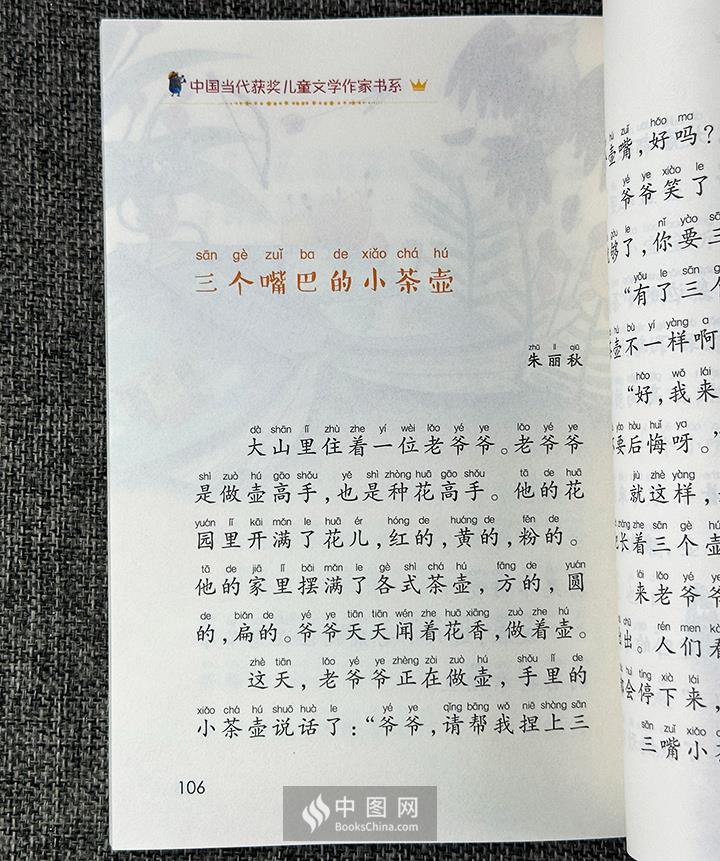 中国当代获奖儿童文学作家书系
sān gè zuǐ ba de xiǎo chá hú
三个嘴巴的小茶壶
zhū lì qiū
朱丽秋
dà shān lǐ zhù zhe yí wèi lǎo yé ye lǎo yé ye
大山里住着一位老爷爷。老爷爷
shì zuò hú gāo shǒu yě shì zhòng huā gāo shǒu tā de huā
是做壶高手，也是种花高手。他的花
yuán lǐ kāi mǎn le huā ér hóng de huáng de fěn de
园里开满了花儿，红的，黄的，粉的。
tā de jiā lǐ bǎi mǎn le gè shì chá hú fāng de yuán
他的家里摆满了各式茶壶，方的，圆
de biǎn de yé ye tiān tiān wén zhe huā xiāng zuò zhe hú
的，扁的。爷爷天天闻着花香，做着壶。
zhè tiān lǎo yé ye zhèng zài zuò hú shǒu lǐ de
这天，老爷爷正在做壶，手里的
xiǎo chá hú shuō huà le yé ye qǐng bāng wǒ niē shàng sān
小茶壶说话了：“爷爷，请帮我捏上三
106
zuǐ hǎo ma
壶嘴，好吗？
yé ye xiào le
爷爷笑了
le nǐ yào sān
够了，你要三
yǒu le sān gè
“有了三个
hú bù yí yàng a
壶不一样啊
hǎo wǒ lái
“好，我来
yào hòu huǐ ya
要后悔呀。”
jiù zhè yàng
就这样，
zhǎng zhe sān gè hú
长着三个壶
lái lǎo yé ye
来老爷爷
chū rén men
出。人们看
huì tíng xià lái
会停下来，
sān zuǐ xiǎo
三嘴小
中图网
BooksChina.com